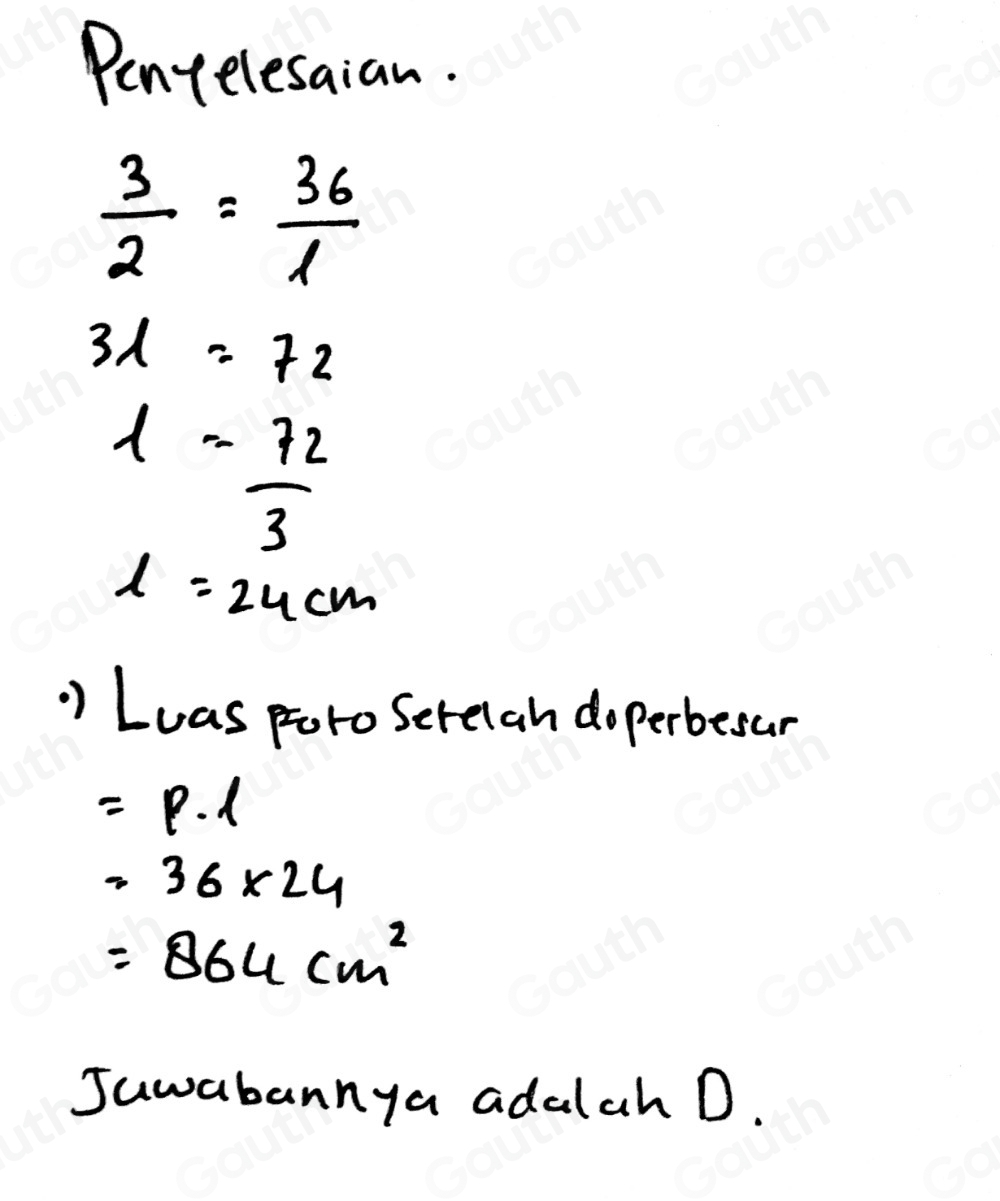 Penyelesaian.
3/2 = 36/l
3l = 72
l = 72/3
l = 24 cm
•) Luas Foto Setelah diperbesar
= p.l
= 36 x 24
= 864 cm²
Jawabannya adalah D.